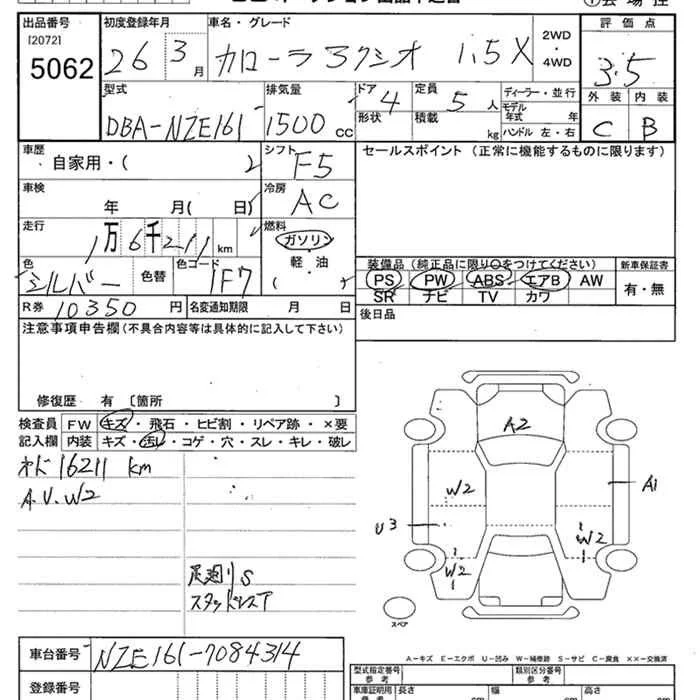 出品番号 初度登録年月 車名・グレード 2WD・4WD 評価点
[2072]
5062 26 3月 カローラアクシオ 1.5X 3.5
型式 排気量 ドア 定員 ディーラー・並行 外装 内装
DBA-NZE161 1500cc 4 5人 モデル年式 年 C B
形状 積載 kg ハンドル 左・右
車歴 シフト セールスポイント (正常に機能するものに限ります)
自家用・( ) F5
車検 冷房
年 月( 日) AC
走行 燃料
1万6千211km ガソリン
軽・油
色 色替 色コード 装備品 (純正品に限り○をつけてください) 新車保証書
シルバー 1F7 ( ) PS PW ABS エアB AW 有・無
SR ナビ TV カワ
R券 10350円 名変通知期限 月 日 後日品
注意事項申告欄(不具合内容等は具体的に記入して下さい)
修復歴 有 〔箇所 〕
検査員 FW キズ・飛石・ヒビ割・リペア跡・×要
記入欄 内装 キズ・汚レ・コゲ・穴・スレ・キレ・破レ
16211 km
A.U.W2
足廻りS
スタッドレスT
A2
W2
A1
U3
W2
W2
スペア
A-キズ E-エクボ U-凹み W-補修跡 S-サビ C-腐食 XX-交換済
車台番号 NZE161-7084314
登録番号
型式指定番号 参考 類別区分番号 参考
車庫証明用 参考 長さ cm 幅 cm 高さ cm